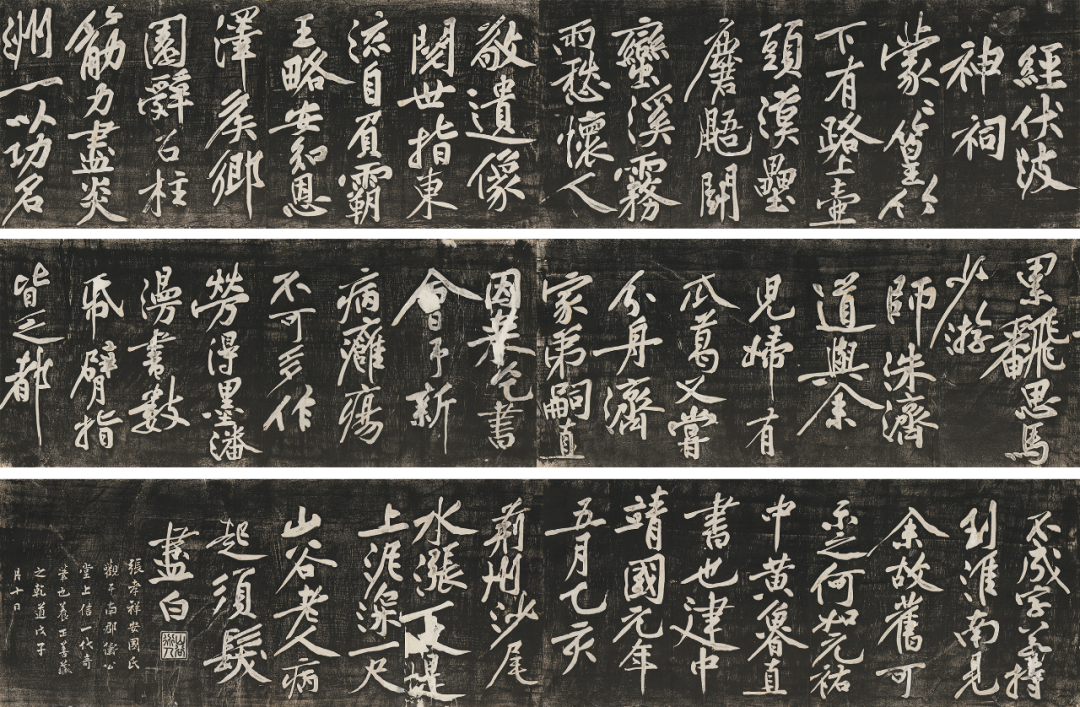 經伏波
神祠
蒙〻篁竹
下有路上壺
頭漢壘
麏鼯鬭
蠻溪霧
雨愁懷人
敬遺像
閱世指東
流自負霸
王略安知恩
澤侯鄉
園辭石柱
筋力盡炎
洲一以功名
累翻思馬
少游
師洙濟
道與余
兒婦有
瓜葛又嘗
分舟濟
家弟嗣直
因來乞書
會予新
病癰瘍
不可多作
勞得墨瀋
漫書數
紙臂指
皆乏都
不成字若持
到淮南見
余故舊可
示之何如元祐
中黃魯直
書也建中
靖國元年
五月乙亥
荊州沙尾
水漲一丈堤
上泥深一尺
山谷老人病
起須髮
盡白
張孝祥安國氏
觀于南郡衛公
堂上信一代奇
筆也養正善藏
之乾道戊子
八月十日